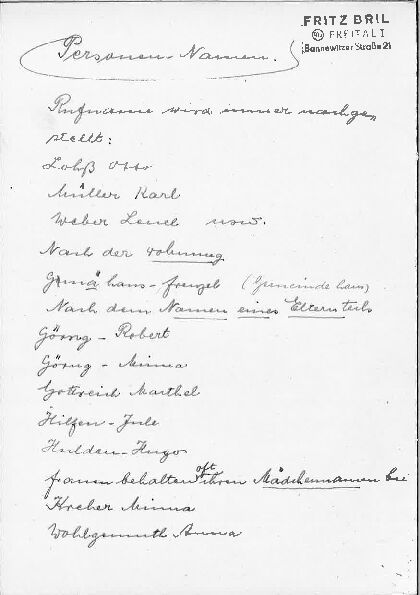 FRITZ BRIL
FREITAL I
Bannewitzer Straße 21
Personen-Namen.
Rufname wird immer nachge„
stellt:
Lohß Otto
Müller Karl
Weber Lenel usw.
Nach der Wohnung
Gmähaus-frenzel (Gemeindehaus)
Nach dem Namen eines Elternteils
Görng - Robert
Görng - Minna
Gottreich Marthel
Hilfen - Jule
Hulden - Hugo
frauen behalten oft ihren Mädchennamen bei
Kreher Minna
Wohlgemuth Anna